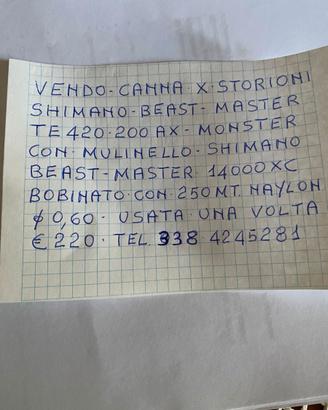 VENDO-CANNA X STORIONI
SHIMANO-BEAST-MASTER
TE420-200AX-MONSTER
CON-MULINELLO-SHIMANO
BEAST-MASTER 14000XC
BOBINATO CON 250MT. NAYLON
¢ 0,60- USATA UNA VOLTA
€ 220- TEL. 338 4245281